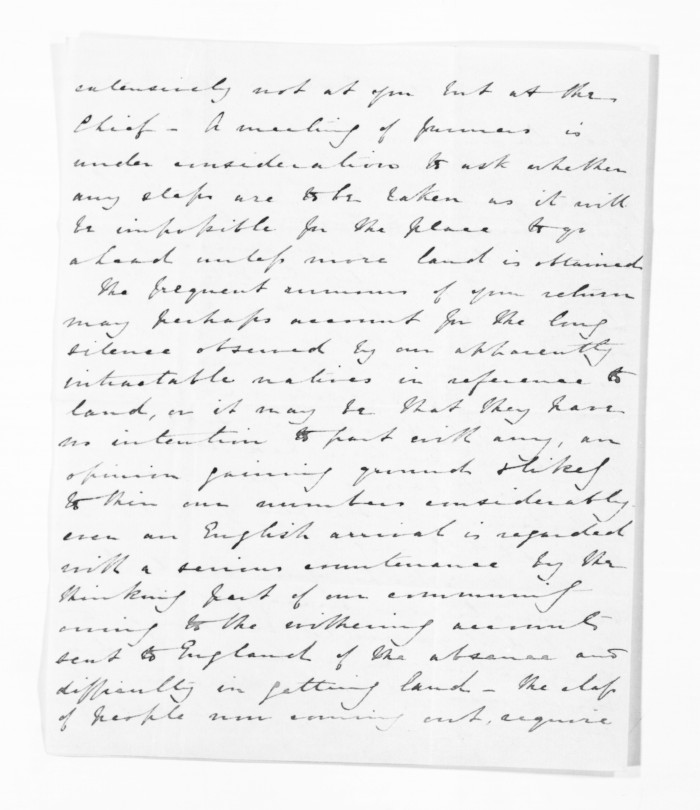 extensively not at you but at the
Chief - A meeting of farmers is
under consideration to ask whether
any steps are to be taken as it will
be impossible for the place to go
ahead unless more land is obtained
The frequent rumours of your return
may perhaps account for the long
silence observed by our apparently
intractable natives in reference to
land, or it may be that they have
no intention to part with any, an
opinion gaining ground & likely
to thin our numbers considerably.
even an English arrival is regarded
with a serious countenance by the
thinking part of our community
owing to the withering accounts
sent to England of the absence and
difficulty in getting land - the class
of people now coming out, require